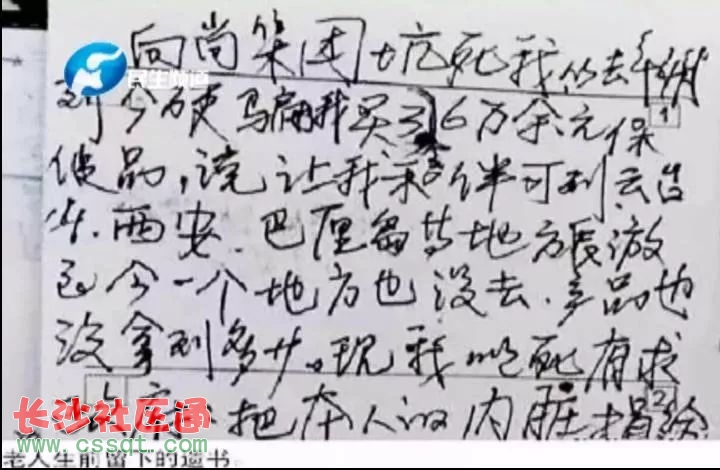 民生频道
向尚集团坑死我 从去年
到今硬骗我买了6万余元保
健品,说让我和老伴可到云台
山、西安、巴厘岛等地方旅游
至今一个地方也没去,产品也
没拿到多少。现我以死有求
把本人的内脏捐给
1
2
长沙社区通
www.cssqt.com
老人生前留下的遗书